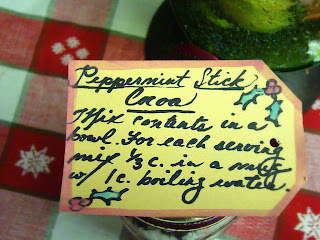 Peppermint Stick
Cocoa
Mix contents in a
bowl. For each serving
mix 1/3 c. in a mug
w/ 1c. boiling water.